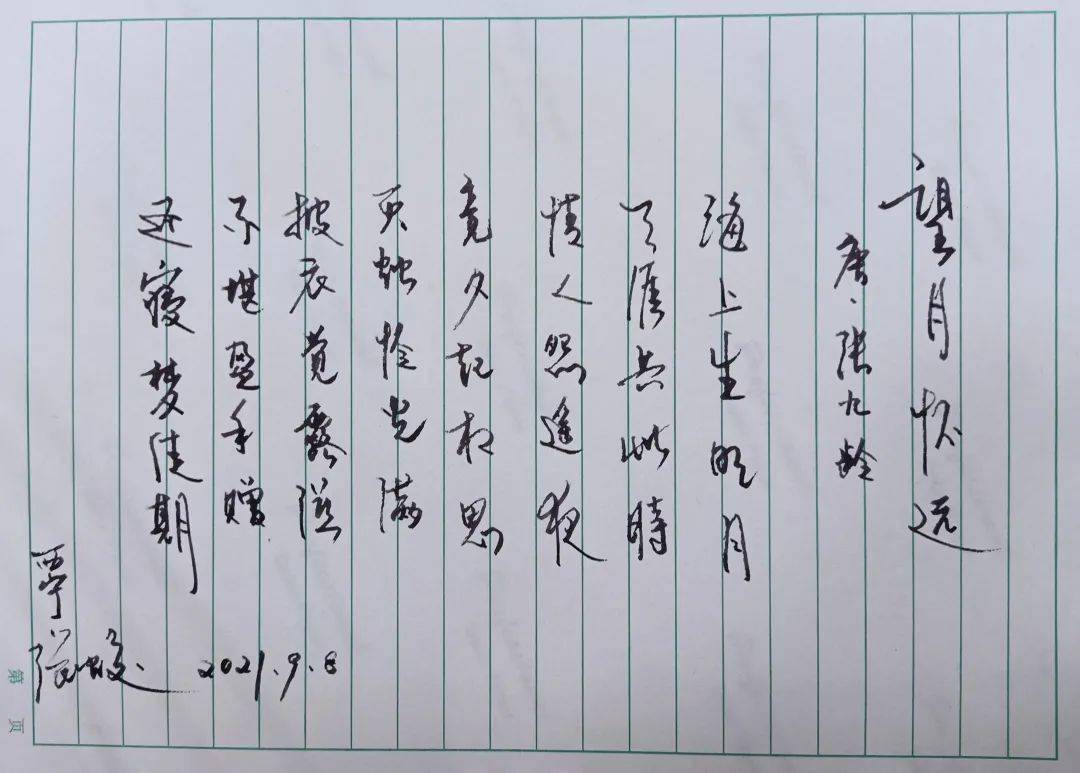 望月怀远
唐·张九龄
海上生明月
天涯共此時
情人怨遥夜
竟夕起相思
灭烛怜光满
披衣觉露滋
不堪盈手赠
还寝梦佳期
西宁
张
2021.9.8
第 页